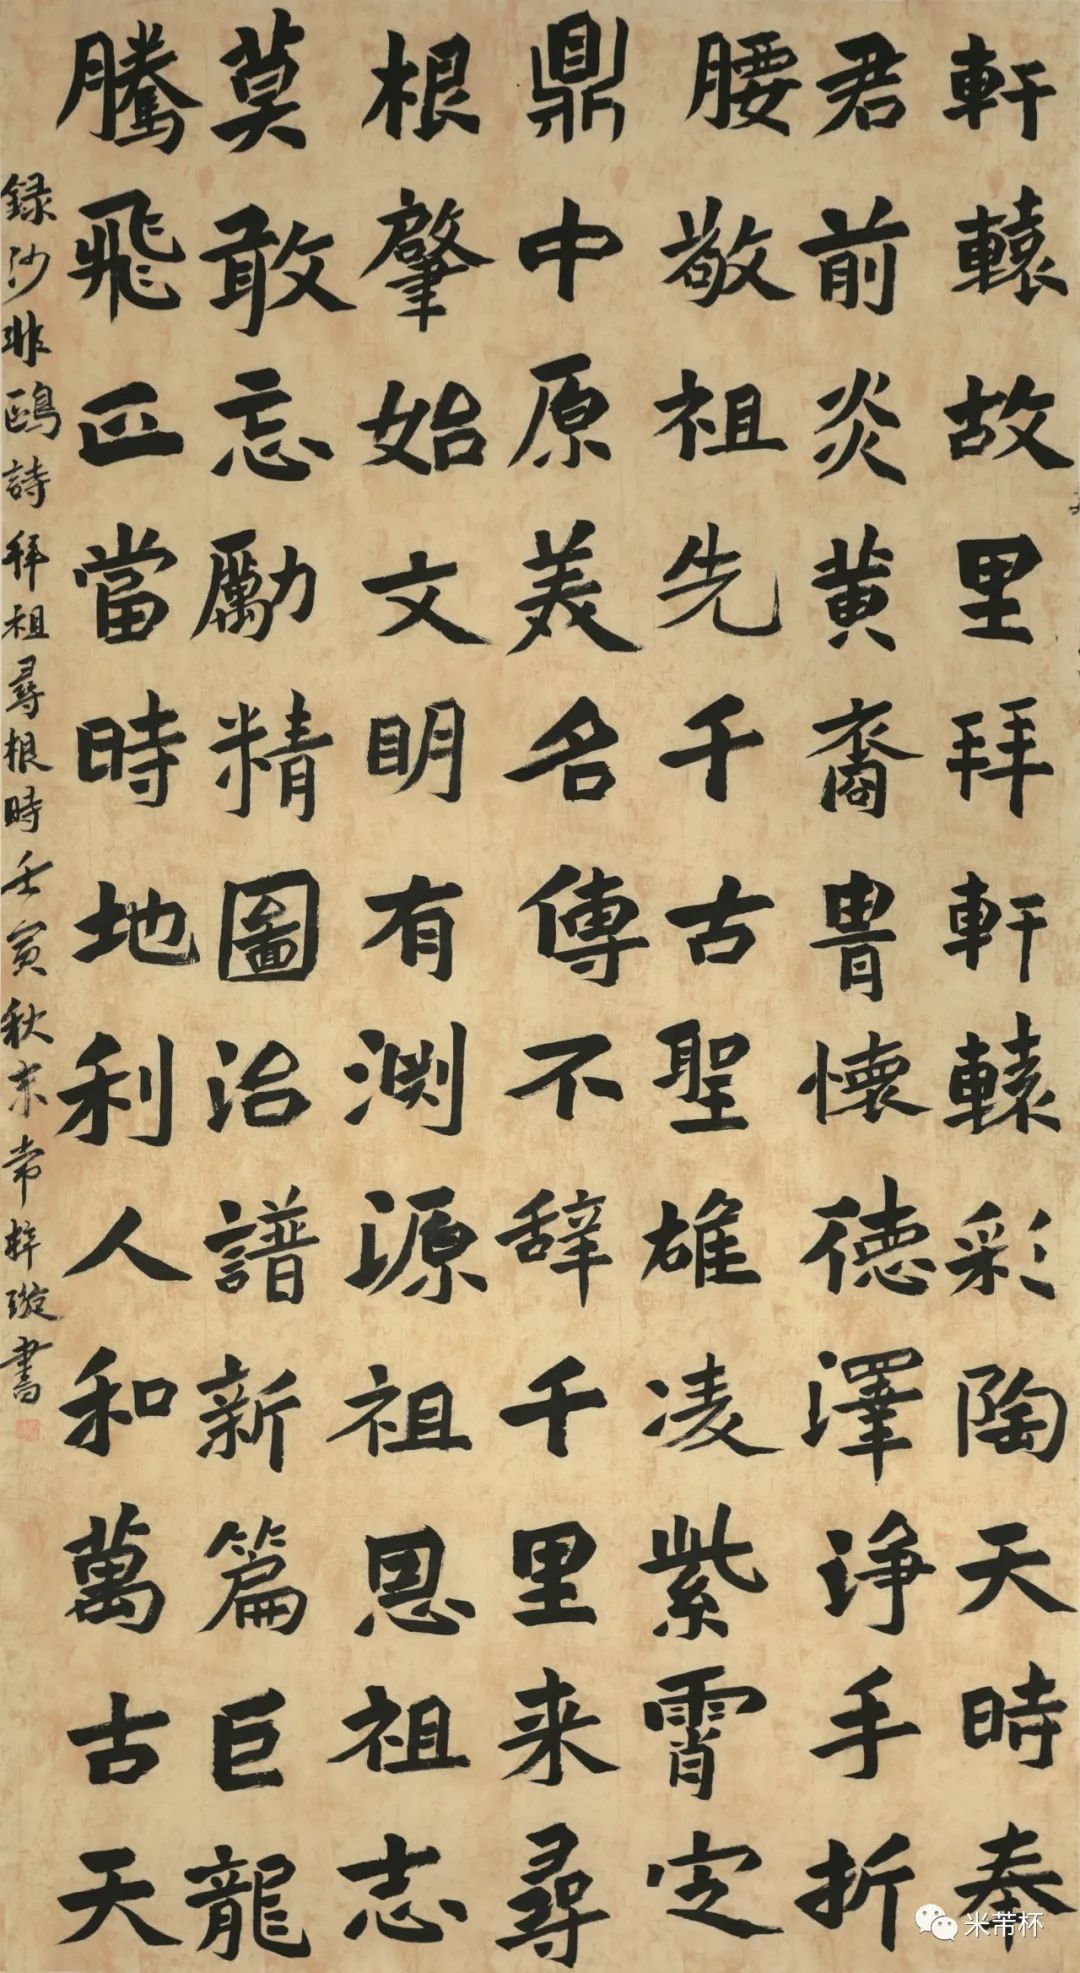 軒轅故里拜軒轅彩陶天時奉
君前炎黄裔胄懷德澤诤手折
腰敬祖先千古聖雄凌紫霄定
鼎中原美名傳不辞千里来尋
根肇始文明有渊源祖恩祖志
莫敢忘勵精圖治譜新篇巨龍
騰飛正當時地利人和萬古天
録沙非鷗詩拜祖尋根時壬寅秋末常梓璇書
米芾杯